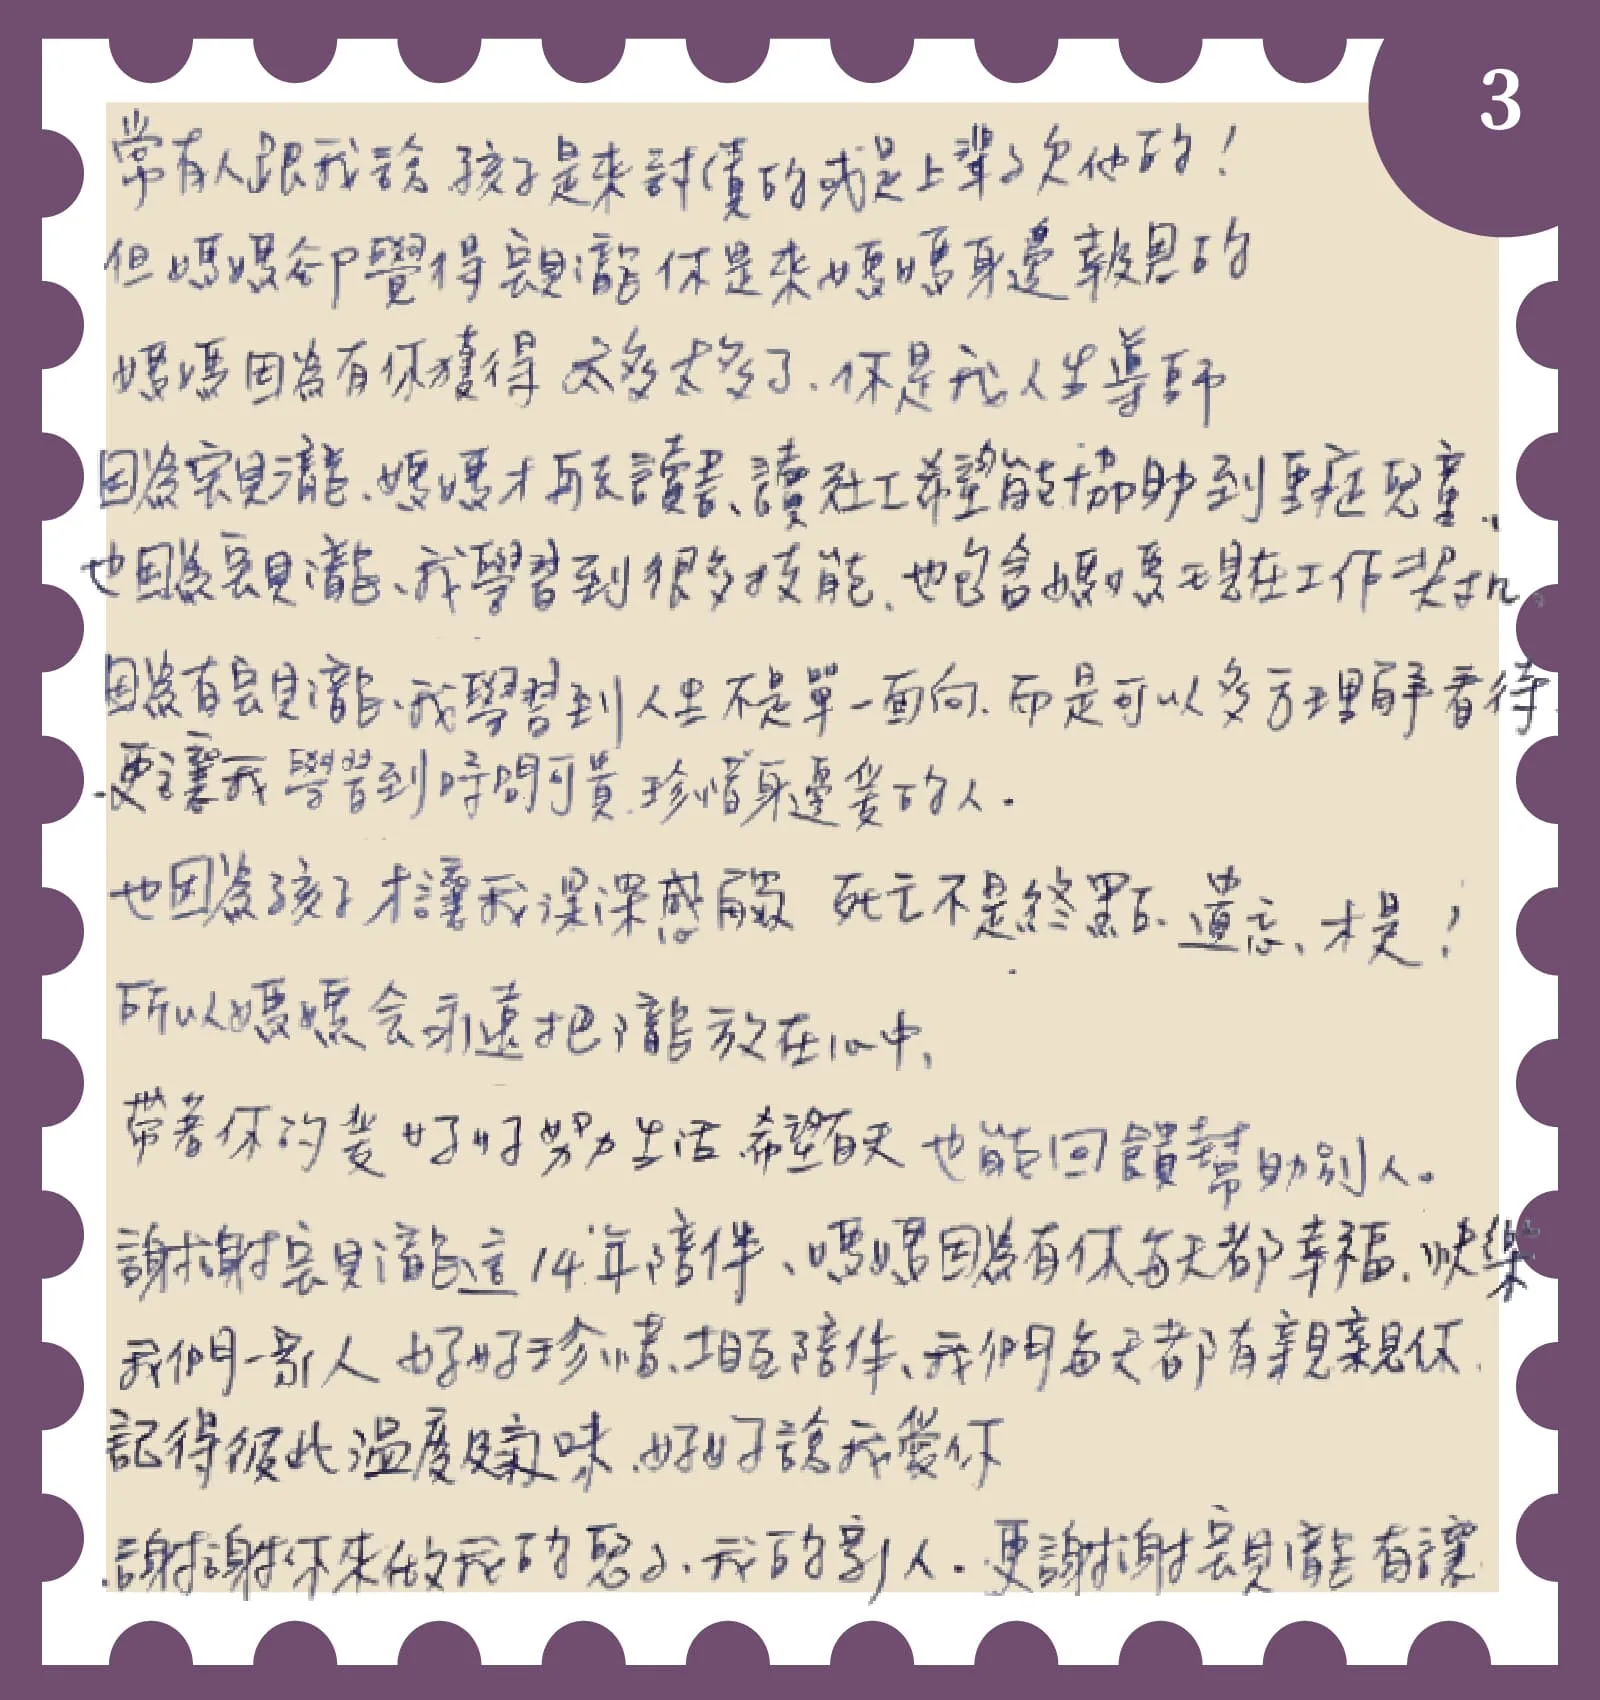 3
常有人跟我說 孩子是來討債的或是上輩子欠他的！
但媽媽卻覺得宸瀧你是來媽媽身邊報恩的
媽媽因為有你獲得 太多太多了、你是我人生導師
因為瀧、媽媽才再去讀書、讀社工希望能協助到重症兒童、
也因為瀧、我學習到很多技能、也包含媽媽現在工作契机。
因為有瀧、我學習到人生不是單一面向、而是可以多方理解看待、
更讓我學習到時間可貴、珍惜身邊愛的人。
也因為孩子才讓我深深感觸 死亡不是終點、遺忘、才是！
所以媽媽会永遠把瀧放在心中、
帶著你的愛好好努力生活、希望有天 也能回饋幫助別人。
謝謝瀧這14年陪伴、媽媽因為有你每天都幸福、快樂
我們一家人 好好珍惜、相互陪伴、我們每天都有親親你、
記得彼此溫度及氣味、好好說我愛你
謝謝你來做我的兒子、我的家人。更謝謝瀧有讓